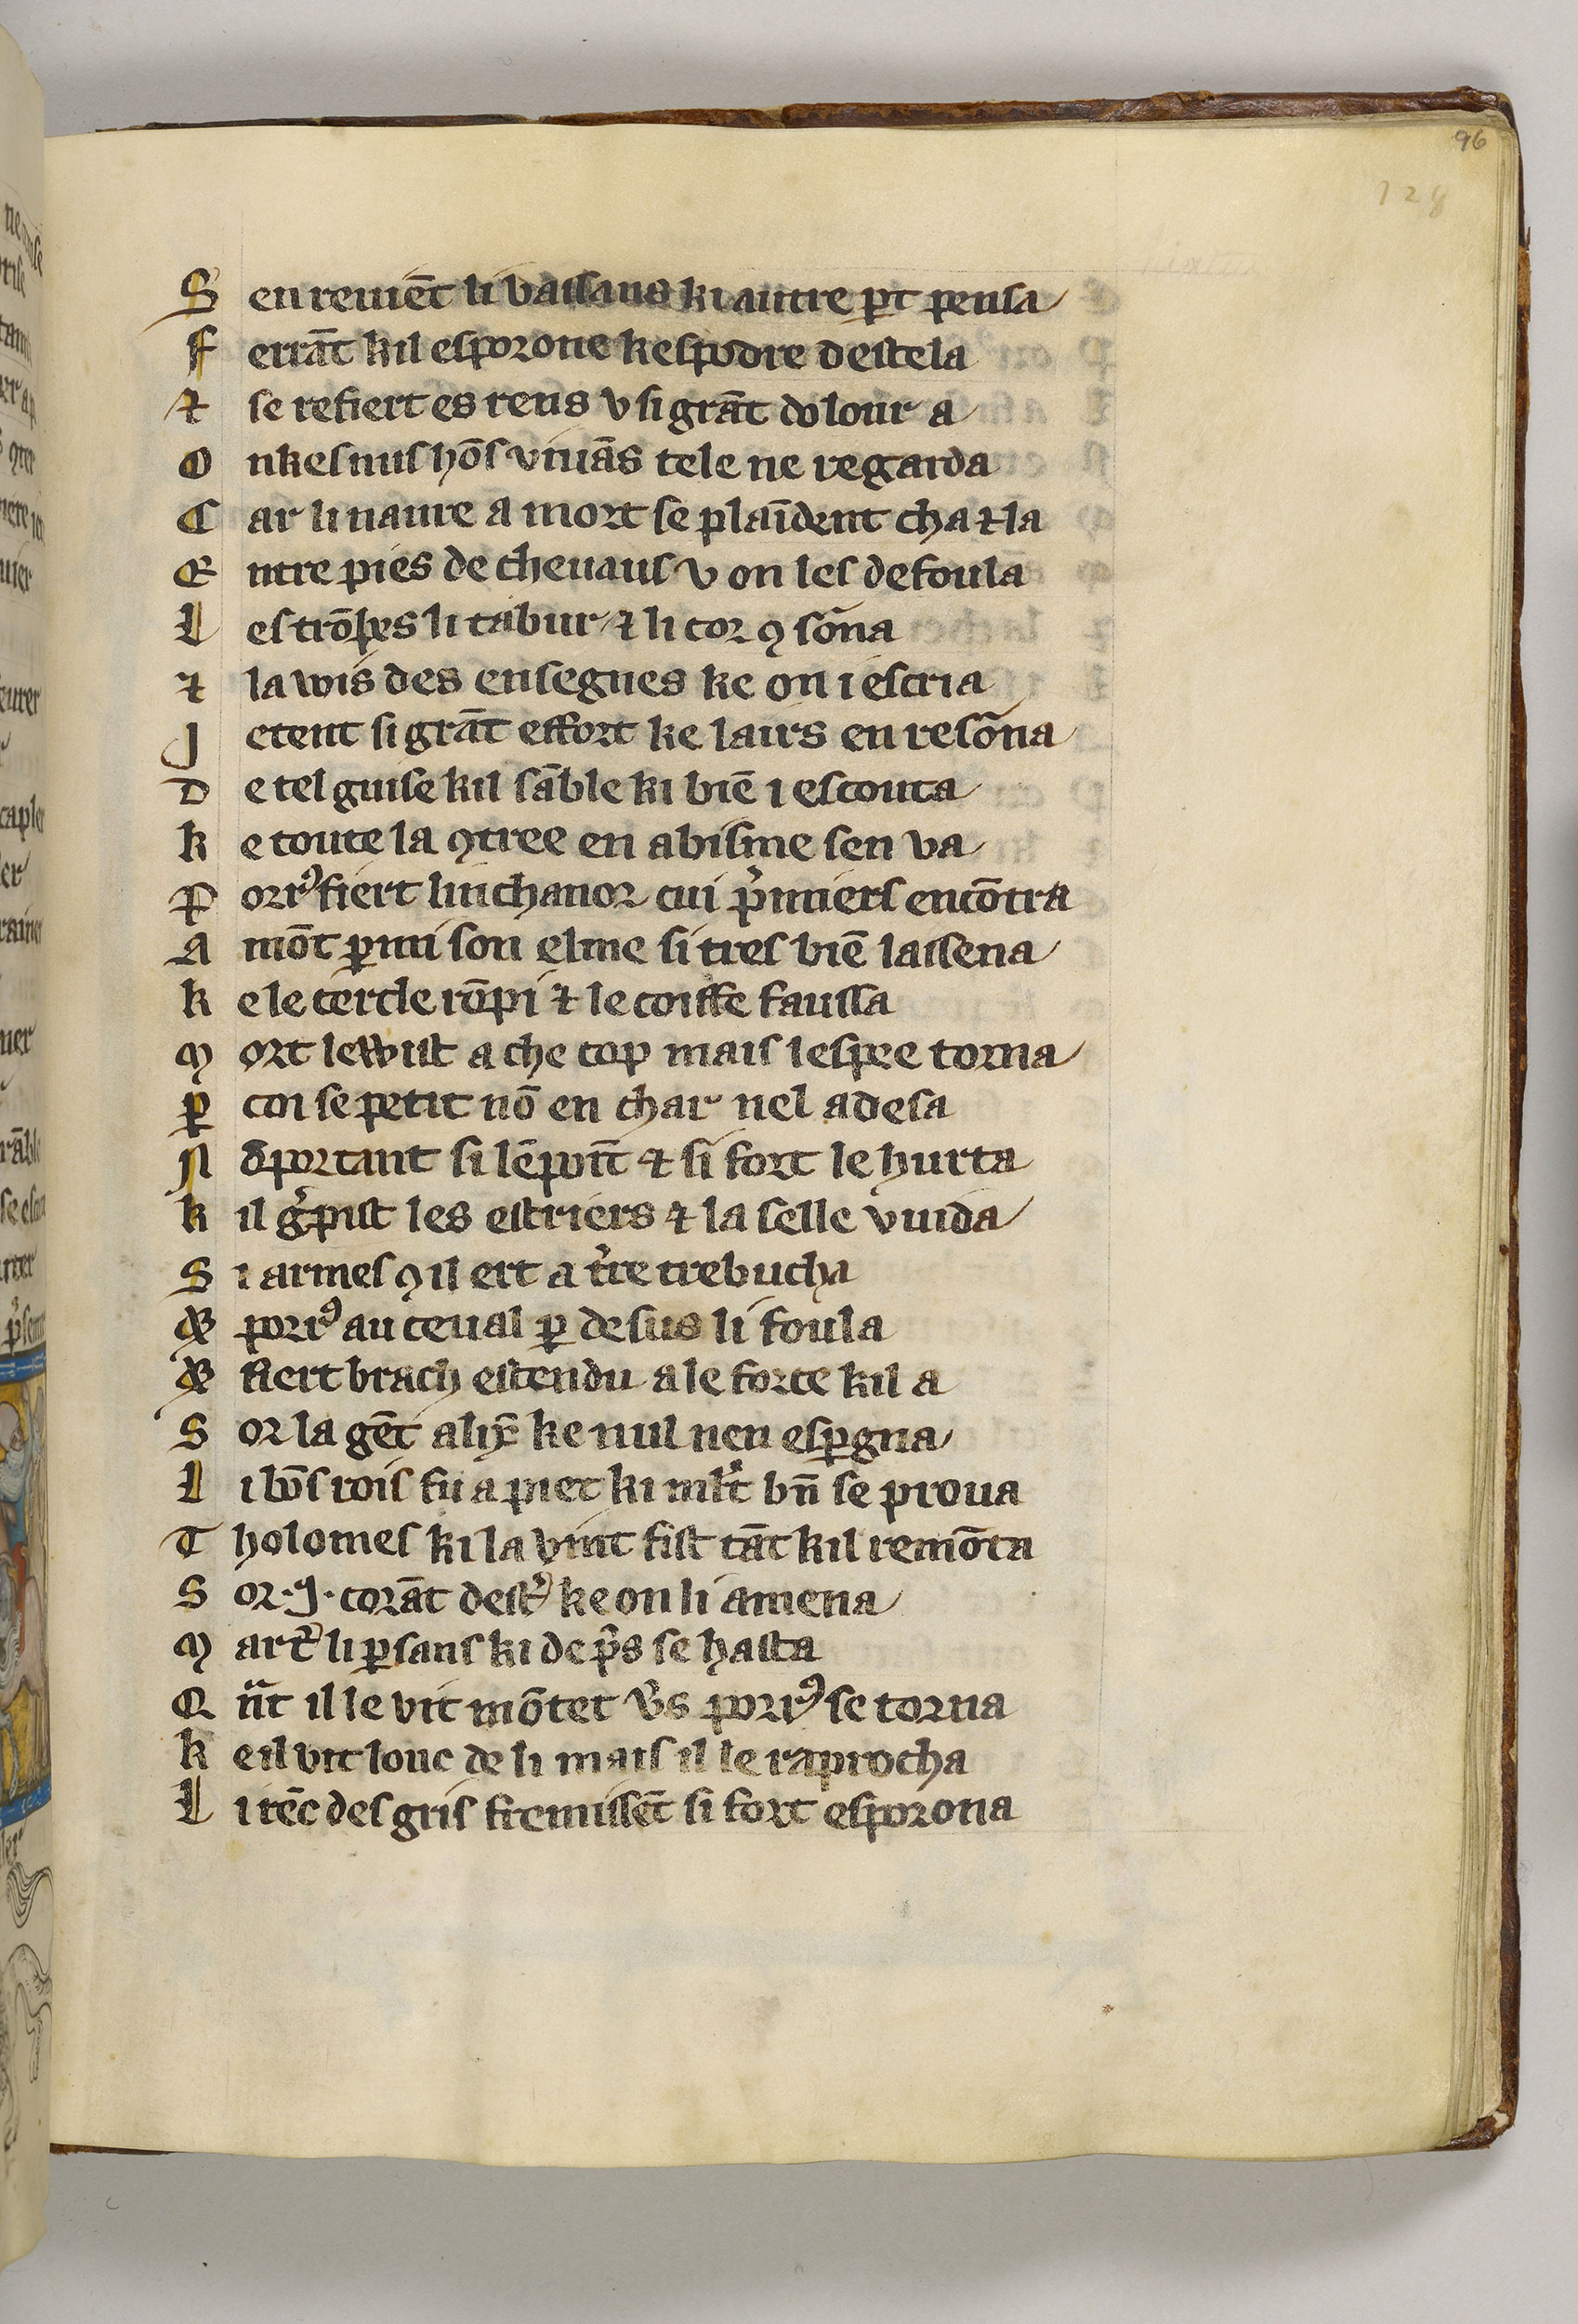 96
128
S en reuiēt li vassaus ki autre ꝑt pensa
F errāt kil esporone kesꝑdre destela
⁊ se refiert es rens v si grāt dolour a
O nkes nus hōs viuās tele ne regarda
C ar li naure a mort se plaīdent cha ⁊ la
E ntre pies de cheuaus v on les defoula
L es trōpes li tabur ⁊ li cor ꝯ sōna
⁊ la wis des ensegnes ke on i escria
J etent si grāt effort ke lairs en resōna
D e tel guise kil sāble ki biē i escouta
K e toute la ꝯtree en abisme sen va
P orrꝰ fiert linchanor cui pͥmiers encōtra
A mōt ꝑmi son elme si tres biē lassena
K e le cercle rōpi ⁊ le coiffe faussa
M ort lewist a che cop mais lespee torna
ꝑ coi se petit nō en char nel adesa
N ēportant si lēpoīt ⁊ si fort le hurta
K il gͥpist les estriers ⁊ la selle vuida
S i armes ꝯ il ert a tͥre trebucha
⁊ porrꝰ au ceual ꝑ desus li foula
⁊ fiert brach estendu a le force kil a
S or la gēt alix̄ ke nul nen esꝑgna
L i bōs rois fu a piet ki ml̄t bn̄ se proua
T holomes ki la vint fist tāt kil remōta
S or .J. corāt dest͛ ke on li amena
M art͛ li ꝑsans ki de pͥs se hasta
Q n̄t il le vit mōtet v͛s porrꝰ se torna
K e il vit louc de li mais il le raprocha
L i rēc des gris fremissēt si fort esporona